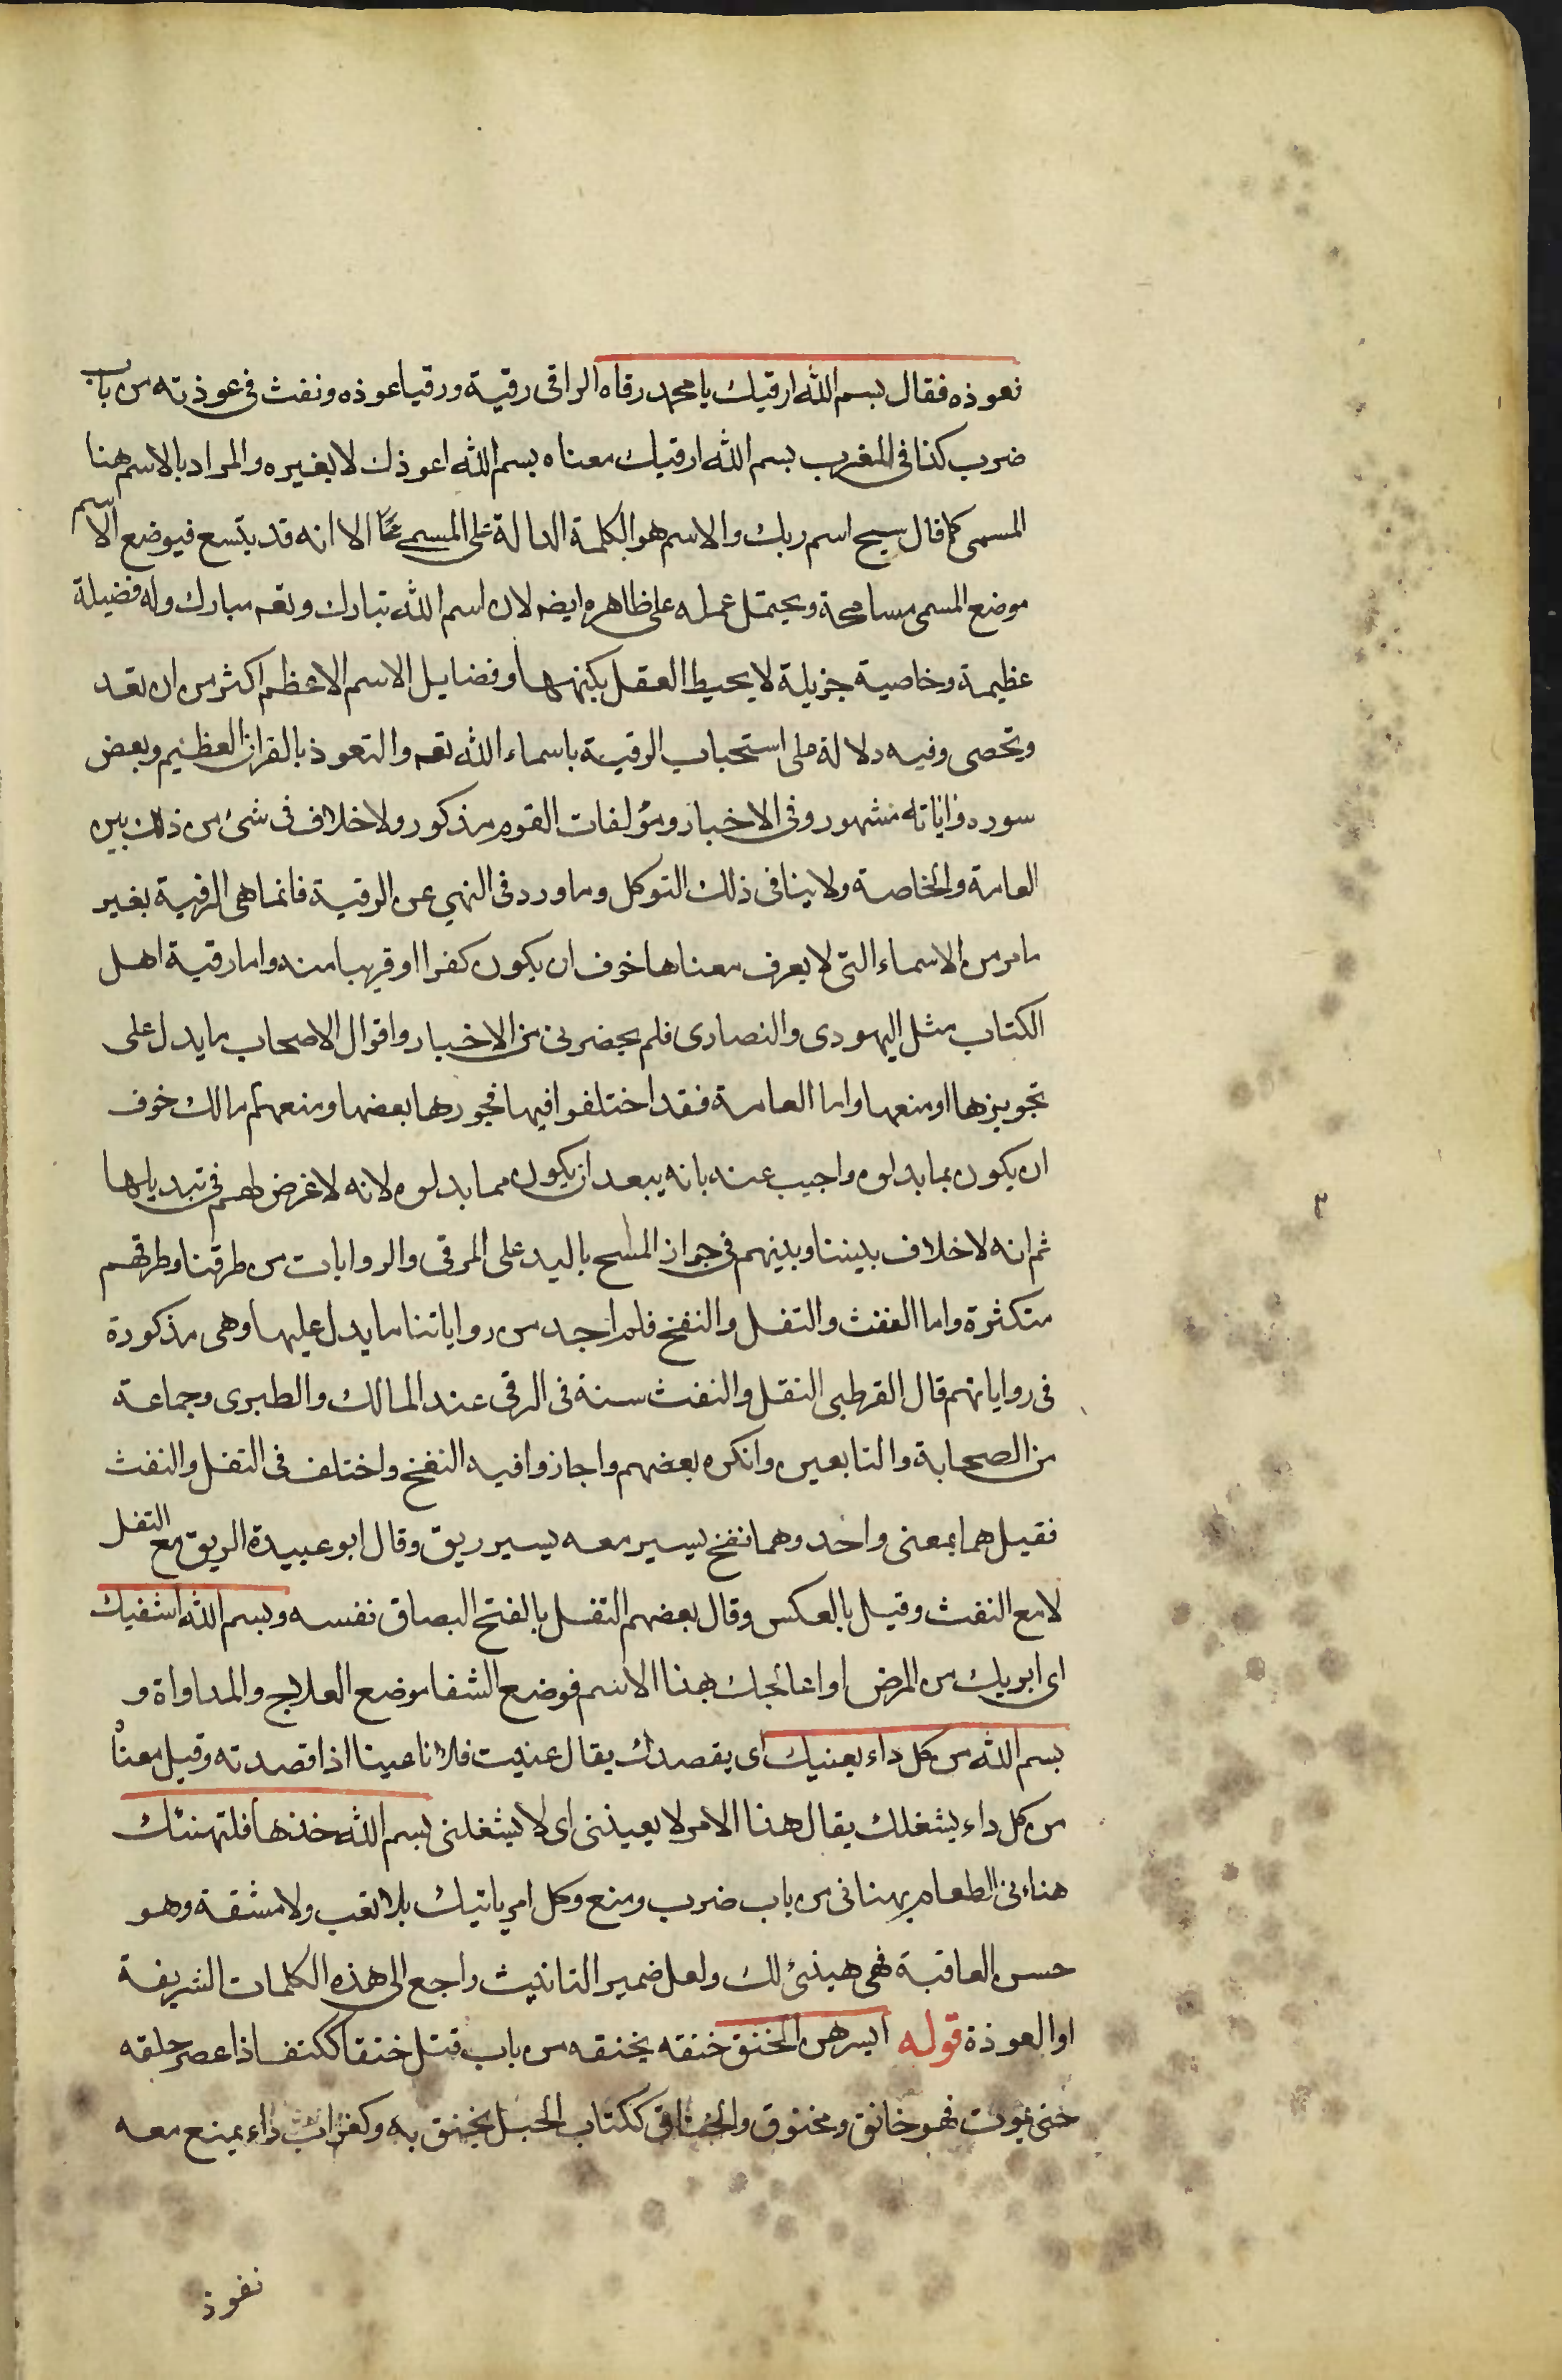 نعوذه فقال بسم الله ارقيك يا محمد رقاه الراقى رقية ورقيا عوذه ونفث فى عوذته من باب
ضرب كذا فى المغرب بسم الله ارقيك معناه بسم الله اعوذك لا بغيره والمراد بالاسم هنا
المسمى كما قال سبح اسم ربك والاسم هو الكلمة الدالة على المسمى الا انه قد يتسع فيوضع الاسم
موضع المسمى مسامحة ويحتمل حمله على ظاهره ايضه لان اسم الله تبارك وتعه مبارك وله فضيلة
عظيمة وخاصية جزيلة لا يحيط العقل بكنهها وفضايل الاسم الاعظم اكثر من ان تعد
وتحصى وفيه دلالة على استحباب الرقية باسماء الله تعه والتعوذ بالقران العظيم وبعض
سوره واياته مشهور وفى الاخبار ومؤلفات القوم مذكور ولا خلاف فى شئ من ذلك بين
العامة والخاصة ولا ينافى ذلك التوكل وما ورد فى النهي عن الرقية فانما هى الرقية بغير
ما مر من الاسماء التى لا يعرف معناها خوف ان يكون كفرا او قريبا منه واما رقية اهل
الكتاب مثل اليهودى والنصارى فلم يحضرنى من الاخبار واقوال الاصحاب ما يدل على
تجويزها او منعها واما العامة فقد اختلفوا فيها فجوزها بعضها ومنعهم مالك خوف
ان يكون بما بدلوه واجيب عنه بانه يبعد ان يكون مما بدلوه لانه لا غرض لهم فى تبديلها
ثم انه لا خلاف بيننا وبينهم فى جواز المسح باليد على المرقى والروايات من طرقنا وطرقهم
متكثرة واما النفث والتفل والنفخ فلم اجد من رواياتنا ما يدل عليها وهى مذكورة
فى رواياتهم قال القرطبى التفل والنفث سنة فى الرقى عند المالك والطبرى وجماعة
من الصحابة والتابعين وانكره بعضهم واجازوا فيه النفخ واختلف فى التفل والنفث
فقيل هما بمعنى واحد وهما نفخ يسير معه يسير ريق وقال ابو عبيدة الريق مع التفل
لا مع النفث وقيل بالعكس وقال بعضهم التفل بالفتح البصاق نفسه وبسم الله اشفيك
اى ابريك من المرض او اعالجك بهذا الاسم فوضع الشفا موضع العلاج والمداواة و
بسم الله من كل داء يعنيك اى يقصدك يقال عنيت فلانا عينا اذا قصدته وقيل معناه
من كل داء يشغلك يقال هذا الامر لا يعينذى اى لا يشغلنى بسم الله خذها فلتهنئك
هناءنى الطعام يهنانى من باب ضرب ومنع وكل امر ياتيك بلا تعب ولا مشقة وهو
حسن العاقبة فهى هينئ لك ولعل ضمير التانيث راجع الى هذه الكلمات الشريفة
او العوذة قوله ايسرهن الخنق خنقه يخنقه من باب قتل خنقا ككتف اذا عصر حلقه
حتى يموت فهو خانق ومخنوق والخناق ككتاب الحبل يخنق به وكغراب داء يمنع معه
نفوذ